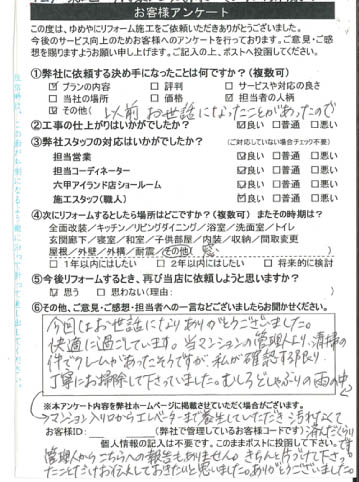 お客様アンケート
この度は、ゆめやにリフォーム施工をご依頼いただきありがとうございました。
今後のサービス向上のためお客様へのアンケートを行っております。ご意見・ご感
想を賜りますようお願い申し上げます。ご記入の上、ポストへ投函してください。
①弊社に依頼する決め手になったことは何ですか？（複数可）
☑ プランの内容 □ 評判 □ サービスや対応の良さ
□ 当社の場所 □ 価格 ☑ 担当者の人柄
☑ その他（以前お世話になったことがあったので
②工事の仕上がりはいかがでしたか？ ☑良い □普通 □悪い
③弊社スタッフの対応はいかがでしたか？ （ご対応していない場合チェック不要）
担当営業 ☑良い □普通 □悪い
担当コーディネーター ☑良い □普通 □悪い
六甲アイランド店ショールーム ☑良い □普通 □悪い
施工スタッフ（職人） ☑良い □普通 □悪い
④次にリフォームするとしたら場所はどこですか？（複数可） またその時期は？
全面改装／キッチン／リビングダイニング／浴室／洗面室／トイレ
玄関廊下／寝室／和室／子供部屋／内装／収納／間取変更
屋根／外壁／外構／耐震／その他（ 窓 ）
□ 1年以内にはしたい □ 2年以内にはしたい □ 将来的に検討
⑤今後リフォームするとき、再び当店に依頼しようと思いますか？
☑ 思う □ 思わない（理由： ）
⑥その他、ご意見・ご感想・担当者への一言などございましたらお聞かせください。
今回はお世話になりありがとうございました。
快適に過ごしています。当マンションの管理人より、清掃の
件でクレームがあったそうですが、私が確認する限り、
丁寧にお掃除して下さっていました。むしろどしゃぶりの雨の中
※本アンケート内容を弊社ホームページに掲載させていただく場合がございます。
マンション入り口からエレベーターまで養生していただき、汚れなくて
お客様ID： （弊社で管理しているお客様コードです） 済んだくらいです
個人情報の記入は不要です。このままポストに投函して下さい。
管理人からこちらへの報告もありません。きちんと片づけて下さっ
たことだけお伝えしておきたいと思いました。ありがとうございました。